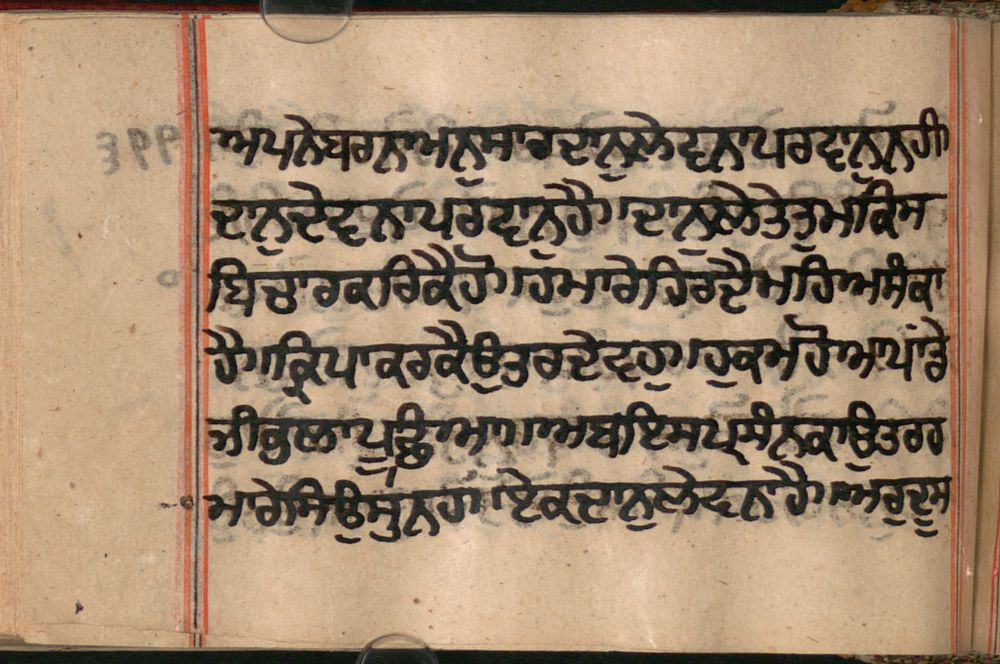 ਅਪਨੇਬਰਨਾਅਨੁਸਾਰਦਾਨੁਲੇਵਨਾਪਰਵਾਨੁਨਹੀ
ਦਾਨੁਦੇਵਨਾਪਰਵਾਨੁਹੈ।ਦਾਨੁਲੈਤੇਤੁਮਕਿਸ
ਬਿਚਾਰਕਰਿਕੈਹੋ।ਹਮਾਰੇਹਿਰਦੈਮਹਿਅਸੰਕਾ
ਹੈ।ਕ੍ਰਿਪਾਕਰਕੈਉਤਰਦੇਵਹੁ।ਹੁਕਮਹੋਆਪਾਂਡੇ
ਜੀਕੁਲਾਪੁਛਿਆ।ਅਬਇਸਪ੍ਰਸੰਨਕਾਉਤਰਹ
ਮਾਰੇਸਿਉਸੁਨਹਾ।ਏਕਦਾਨੁਲੇਵਨਾਹੈ।ਅਰੁਦੂਸ